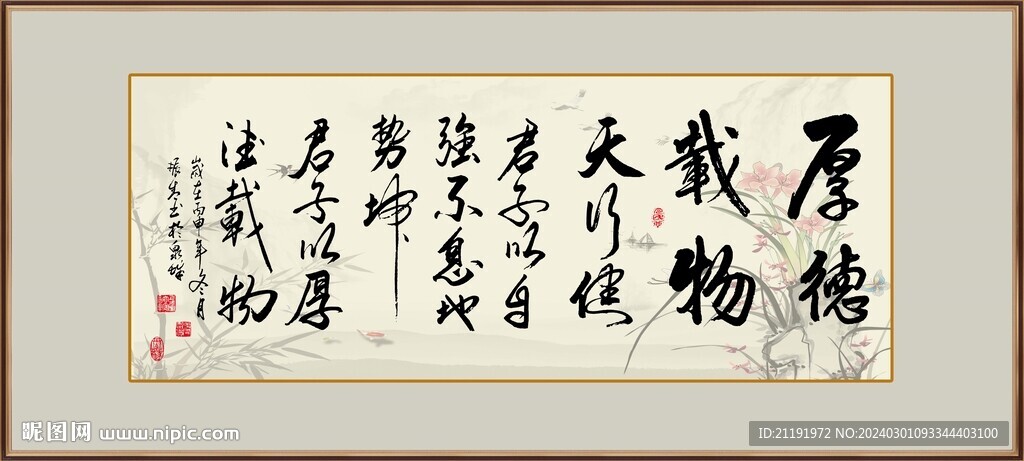 厚德
載物
天行健
君子以自
強不息地
勢坤
君子以厚
德載物
歲在丙申年冬月
昵图网 www.nipic.com
ID:21191972 NO:20240301093344403100